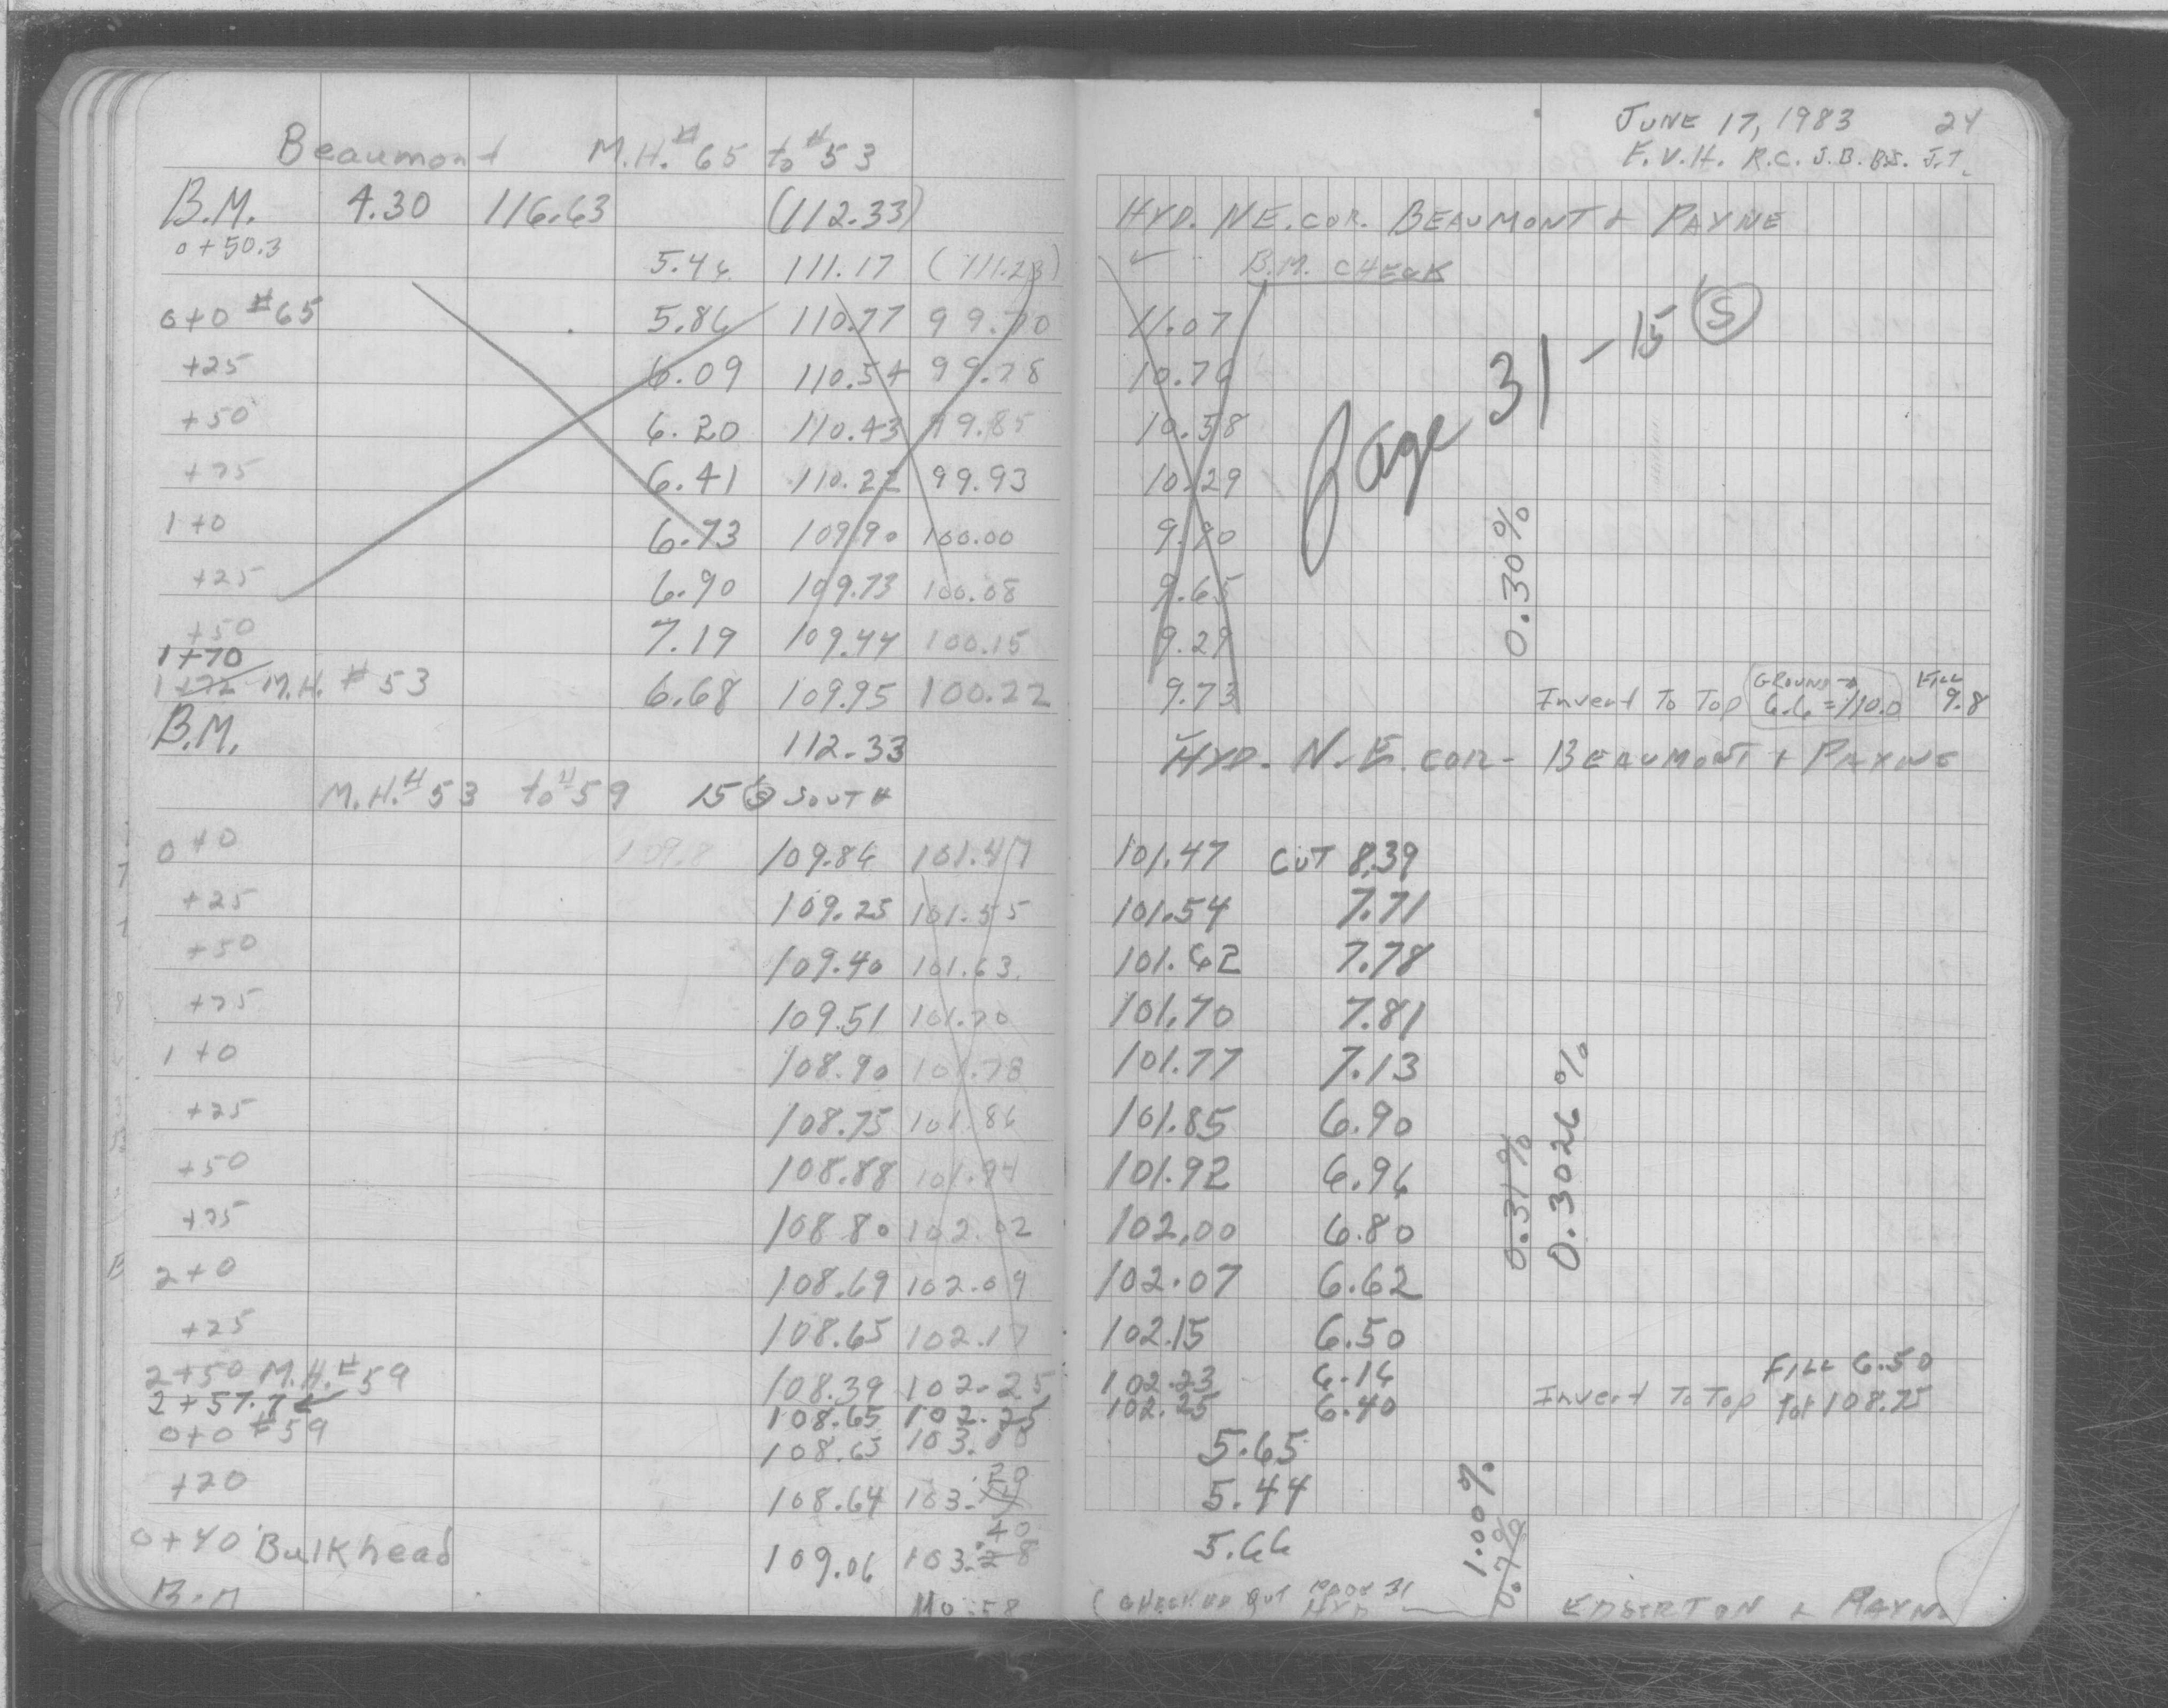 JUNE 17, 1983 24
F.V.H. R.C. J.B. B.S. J.T.
Beaumont M.H. #65 to #53
B.M. 4.30 116.63 (112.33) HYD. NE. COR. BEAUMONT & PAYNE
0+50.3 5.46 111.17 (111.23) ✓ B.M. CHECK
0+0 #65 5.86 110.77 99.70 11.07
+25 6.09 110.54 99.78 10.76
+50 6.20 110.43 99.85 10.58
+75 6.41 110.22 99.93 10.29
1+0 6.73 109.90 100.00 9.90
+25 6.90 109.73 100.08 9.65
+50 7.19 109.44 100.15 9.29
Page 31 - 15 (S)
0.30%
1+70
1+72 M.H. #53 6.68 109.95 100.22 9.73 Invert To Top GROUND 6.6=110.0 FILL 9.8
B.M. 112.33 HYD. N.E. COR - BEAUMONT & PAYNE
M.H. #53 to #59 15 (S) SOUTH
0+0 109.8 109.86 101.47 101.47 CUT 8.39
+25 109.25 101.55 101.54 7.71
+50 109.40 101.63 101.62 7.78
+75 109.51 101.70 101.70 7.81
1+0 108.90 101.78 101.77 7.13
+25 108.75 101.86 101.85 6.90
+50 108.88 101.94 101.92 6.96
+75 108.80 102.02 102.00 6.80
2+0 108.69 102.09 102.07 6.62
+25 108.65 102.17 102.15 6.50
0.31% 0.3026%
2+50 M.H. #59 108.39 102.25 102.23 6.16 FILL 6.50
2+57.7 108.65 102.25 102.25 6.40 Invert To Top Tot 108.75
0+0 #59 108.65 103.00 5.65
+20 108.64 103.20 5.44
0+40 Bulkhead 109.06 103.40 5.66
1.00%
0.7%
B.M. 110.58 (CHECKED OUT PAGE 31 HYD EDGERTON & PAYNE